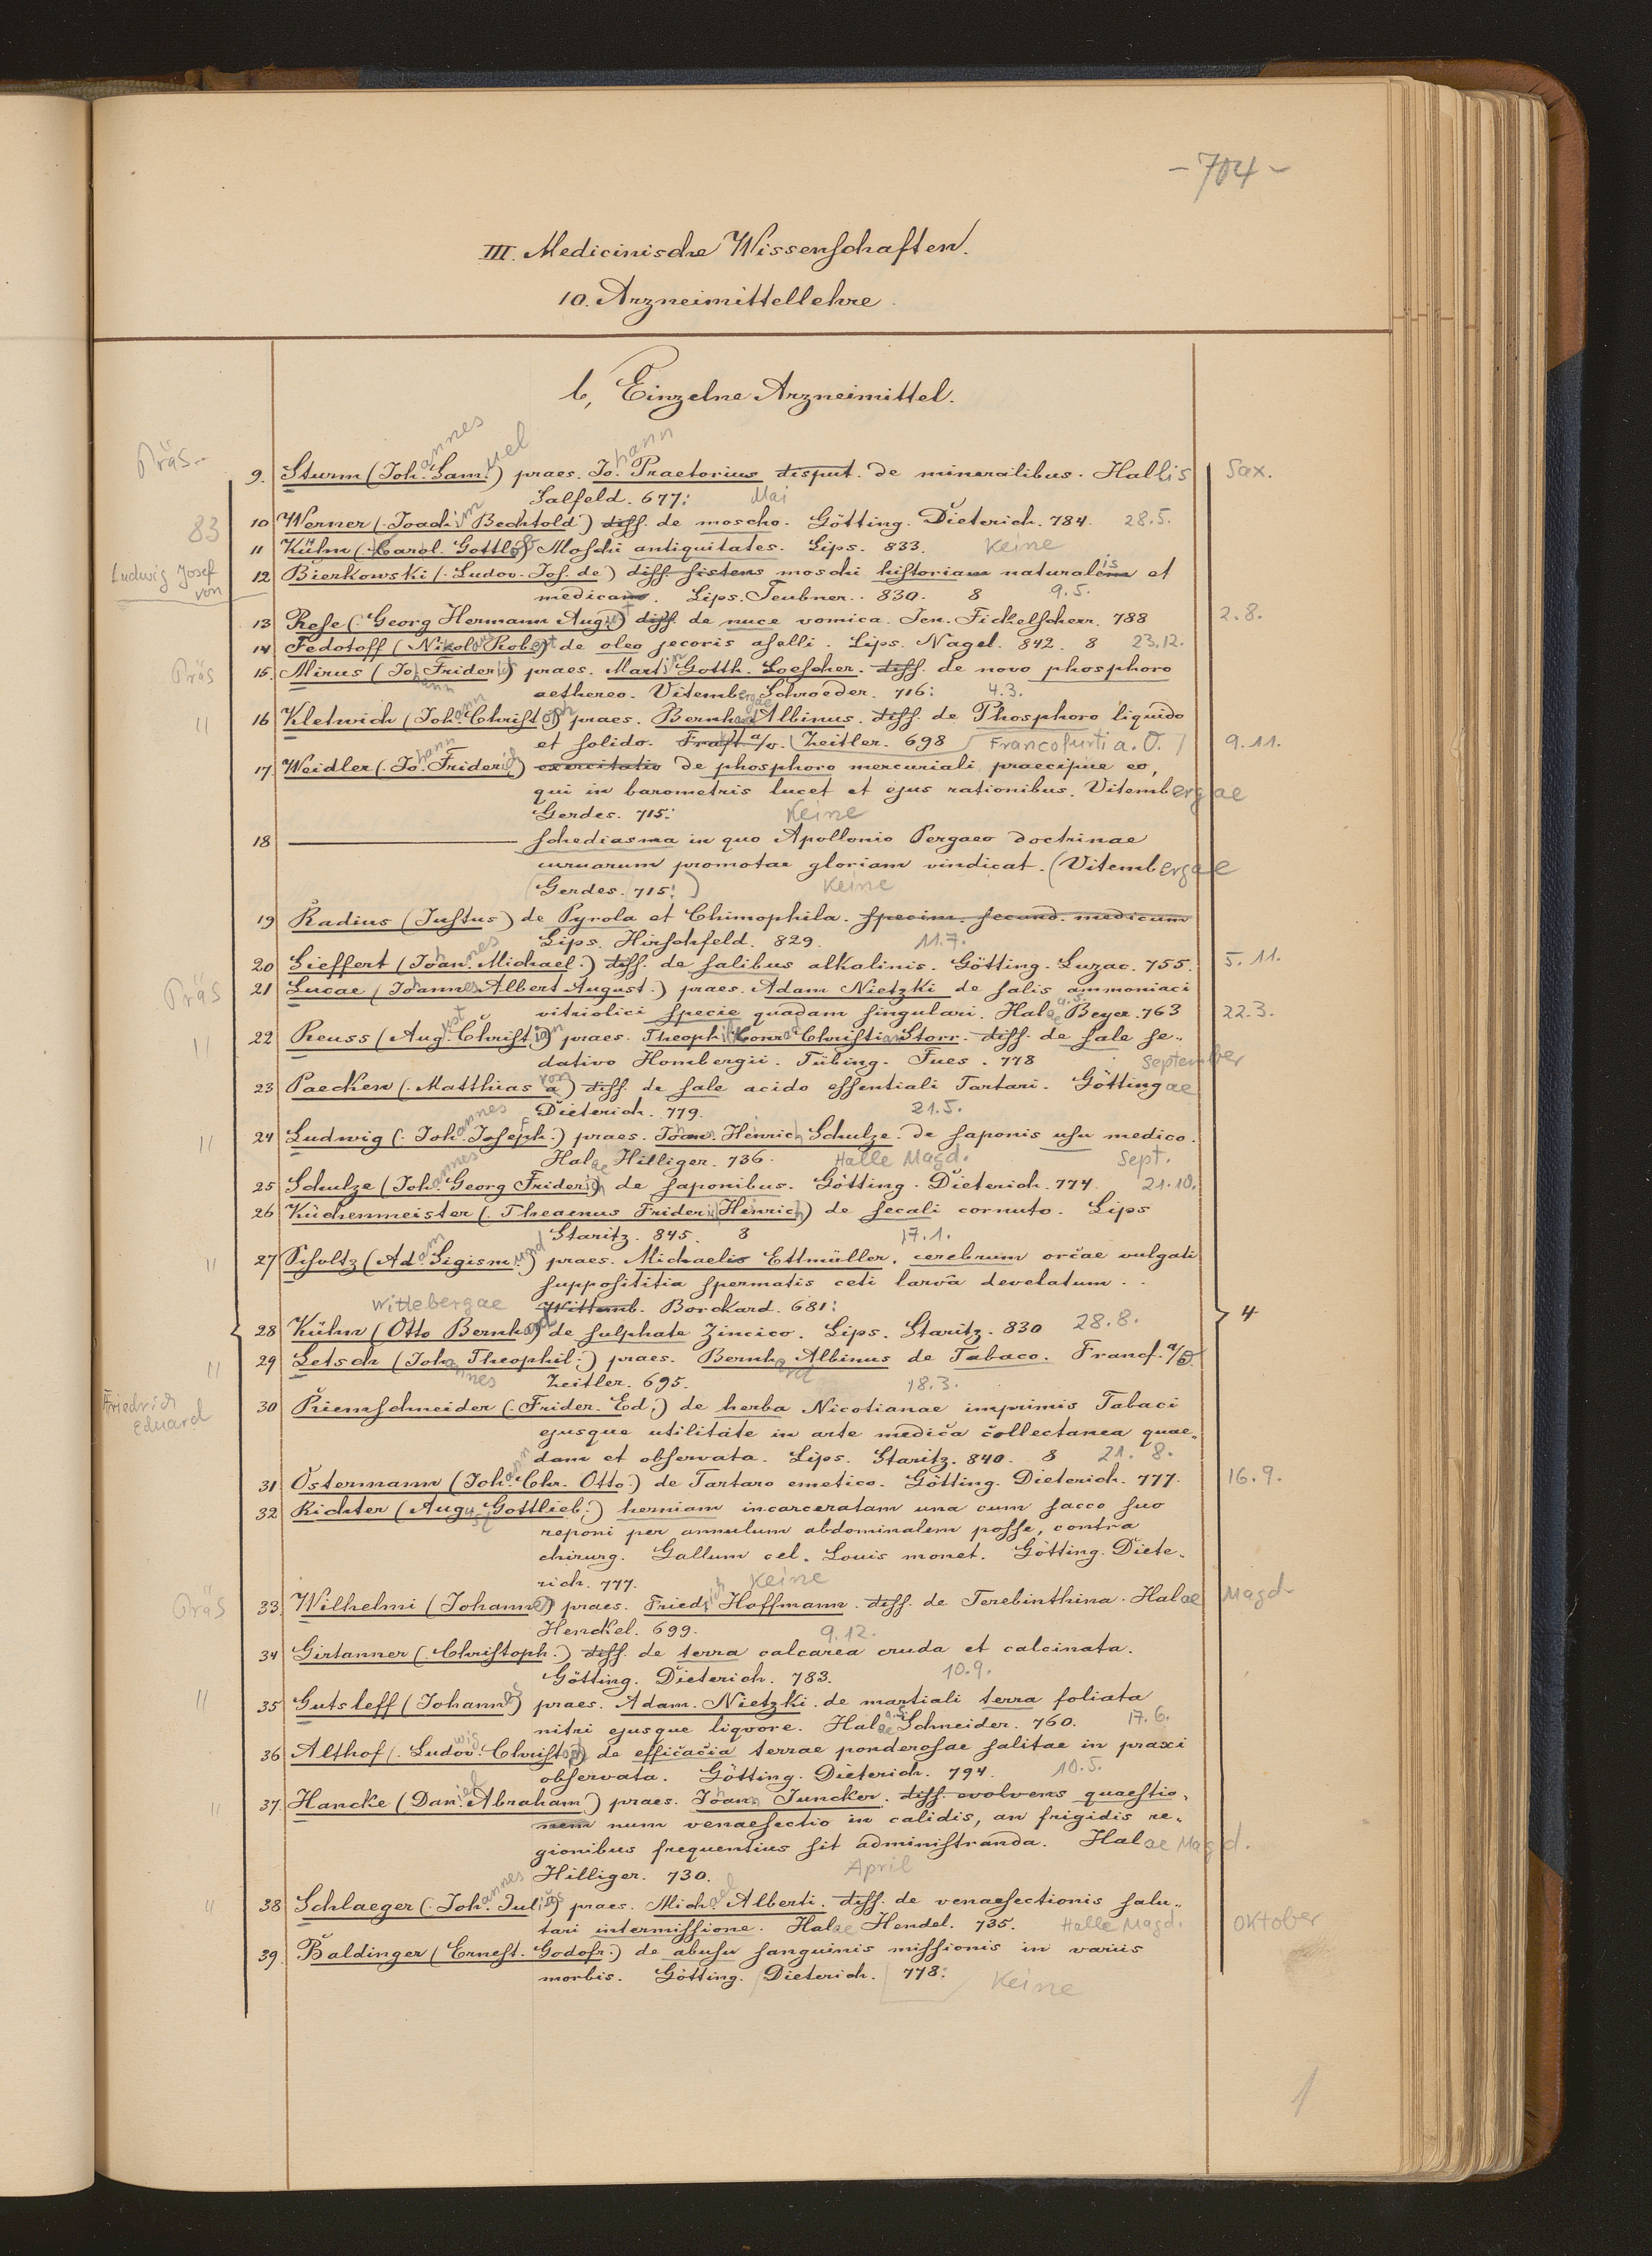 - 704 -
III. Medicinische Wissenschaften.
10. Arzneimittellehre.
b, Einzelne Arzneimittel.
Präs. 9. Sturm (Johannes Samuel) praes. Johann Praetorius disput. de mineralibus. Hallis Sax.
Salfeld. 677: Mai
83 10 Werner (Joachim Bechtold) diss. de moscho. Götting. Dieterich. 784. 28.5.
11 Kühn (Carol. Gottlob) Moschi antiquitates. Lips. 833. Keine
Ludwig Josef von 12 Bierkowski (Ludov. Jos. de) diss. sistens moschi historiam naturalem et
medicam. Lips. Teubner. 830. 8 9.5.
13 Rese (Georg Hermann August) diss. de nuce vomica. Jen. Fickelscherr. 788 2.8.
14 Fedotoff (Nikolai Robert) de oleo jecoris aselli. Lips. Nagel. 842. 8 23.12.
Präs 15. Mirus (Johann Friderich) praes. Martin Gotth. Loescher. diss. de novo phosphoro
aethereo. Vitembergae Schroeder. 716: 4.3.
" 16 Kletwich (Johann Christoph) praes. Bernhard Albinus. diss. de Phosphoro liquido
et solido. Frcft a/o. Zeitler. 698 Francofurti a. O. 9.11.
17. Weidler (Johann Friderich) exercitatio de phosphoro mercuriali praecipue eo,
qui in barometris lucet et ejus rationibus. Vitembergae
Gerdes. 715: Keine
18 ——— schediasma in quo Apollonio Pergaeo doctrinae
curvarum promotae gloriam vindicat. (Vitembergae
(Gerdes. 715:) Keine
19 Radius (Justus) de Pyrola et Chimophila. specim. secund. medicum
Lips. Hirschfeld. 829. 11.7.
20 Sieffert (Johannes Michael.) diss. de salibus alkalinis. Götting. Luzac. 755. 5.11.
Präs 21 Lucae (Johannes Albert August.) praes. Adam Nietzki de salis ammoniaci
vitriolici specie quadam singulari. Halae a.S. Beyer. 763 22.3.
" 22 Reuss (August Christian) praes. Theophil Conrad Christian Storr. diss. de sale se-
dativo Hombergii. Tübing. Fues. 778 September
23 Paecken (Matthias a von) diss. de sale acido essentiali Tartari. Göttingae
Dieterich. 779. 21.5.
" 24 Ludwig (Johannes Joseph.) praes. Joann. Heinrich Schulze. de saponis usu medico.
Halae Hilliger. 736. Halle Magd. Sept.
25 Schulze (Johannes Georg Friderich) de saponibus. Götting. Dieterich. 774. 21.10.
26 Küchenmeister (Theaenus Frider. Heinrich) de secali cornuto. Lips
Staritz. 845. 8 17.1.
" 27 Scholtz (Adam Sigismund) praes. Michaelis Ettmüller. cerebrum orcae vulgari
supposititia spermatis ceti larvâ develatum.
Wittebergae Wittemb. Borckard. 681:
28 Kühn (Otto Bernhard) de sulphate Zincico. Lips. Staritz. 830 28.8. 4
" 29 Letsch (Johannes Theophil.) praes. Bernhard Albinus de Tabaco. Francf. a/O.
Zeitler. 695. 18.3.
Friedrich Eduard 30 Riemschneider (Frider. Ed.) de herba Nicotianae imprimis Tabaci
ejusque utilitate in arte medica collectanea quae-
dam et observata. Lips. Staritz. 840. 8 21. 8.
31 Ostermann (Johann Chr. Otto.) de Tartaro emetico. Götting. Dieterich. 777. 16.9.
32 Richter (August Gottlieb.) herniam incarceratam una cum sacco suo
reponi per annulum abdominalem posse, contra
chirurg. Gallum cel. Louis monet. Götting. Diete-
rich. 777. Keine
Präs 33. Wilhelmi (Johannes) praes. Friedrich Hoffmann. diss. de Terebinthina. Halae Magd.
Henckel. 699. 9.12.
34 Girtanner (Christoph.) diss. de terra calcarea cruda et calcinata.
Götting. Dieterich. 783. 10.9.
" 35 Gutsleff (Johannes) praes. Adam. Nietzki. de martiali terra foliata
nitri ejusque liqvore. Halae a.S. Schneider. 760. 17.6.
36 Althof (Ludwig Christoph) de efficacia terrae ponderosae salitae in praxi
observata. Götting. Dieterich. 794. 10.5.
" 37. Hancke (Daniel Abraham) praes. Johann Juncker. diss. evolvens quaestio-
nem num venaesectio in calidis, an frigidis re-
gionibus frequentius sit administranda. Halae Magd.
Hilliger. 730. April
" 38 Schlaeger (Johannes Julius) praes. Michael Alberti. diss. de venaesectionis salu-
tari intermissione. Halae Hendel. 735. Halle Magd. Oktober
39. Baldinger (Ernest. Godofr.) de abusu sanguinis missionis in variis
morbis. Götting. Dieterich. 778: Keine
1